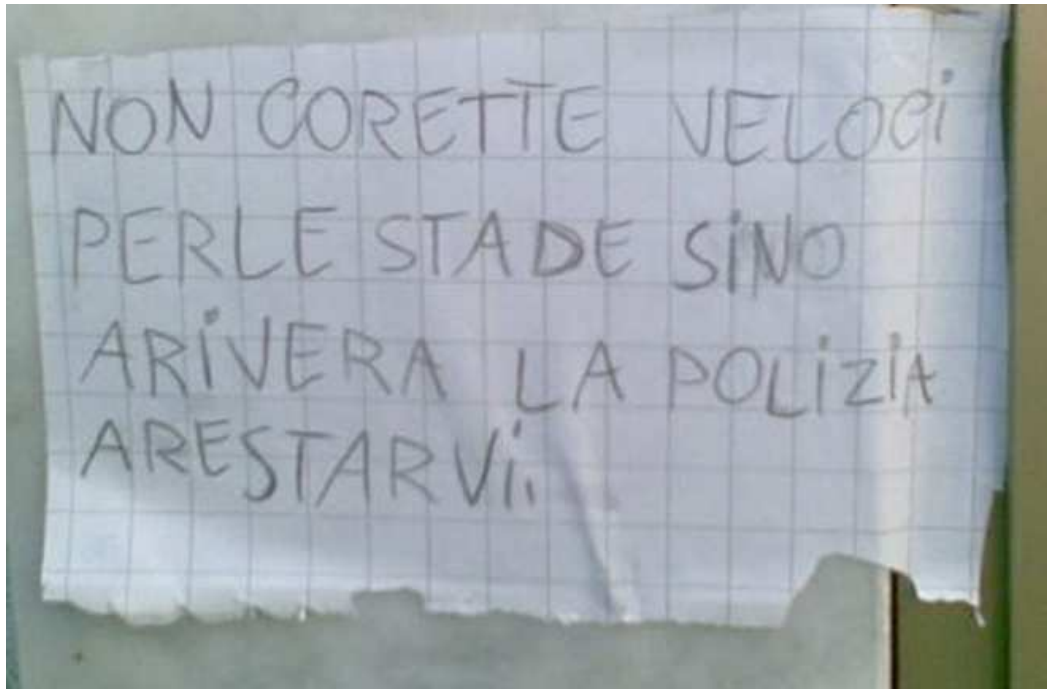 NON CORETTE VELOCI
PERLE STADE SINO
ARIVERA LA POLIZIA
ARESTARVI.